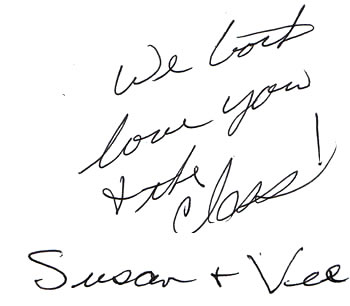 We both
love you
+ the
class!
Susan + Vee